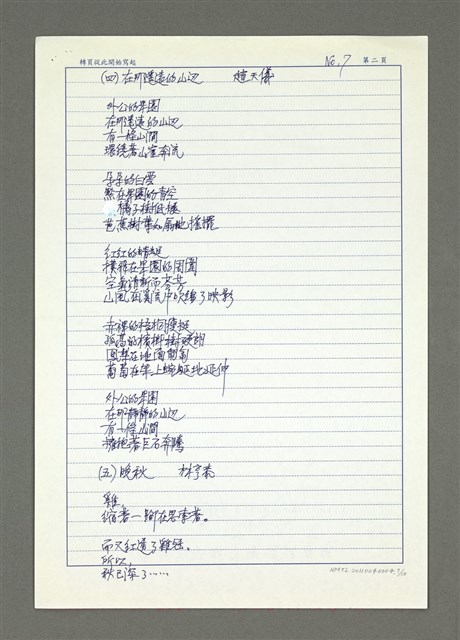 轉頁從此開始寫起 No. 7 第二頁
(四)在那遙遠的山辺 趙天儀
外公的果園
在那遙遠的山辺
有一條山澗
環繞著山崖奔流
朵朵的白雲
飄在果園的青空
橘子樹低垂
芭蕉樹葉如扇地搖擺
紅紅的蜻蜓
撲翅在果園的周圍
空氣清新而芬芳
山風在溪流中吹皺了映影
赤裸的梧桐硬挺
孤高的檳榔樹
鳳梨在地面匍匐
葡萄在架上蜿蜒地延伸
外公的果園
在那靜靜的山辺
有一條山澗
擁抱著巨石奔騰
(五)晚秋 林宇泰
雞,
縮著一腳在思索著。
而又紅透了雞冠。
所以,
秋已深了……